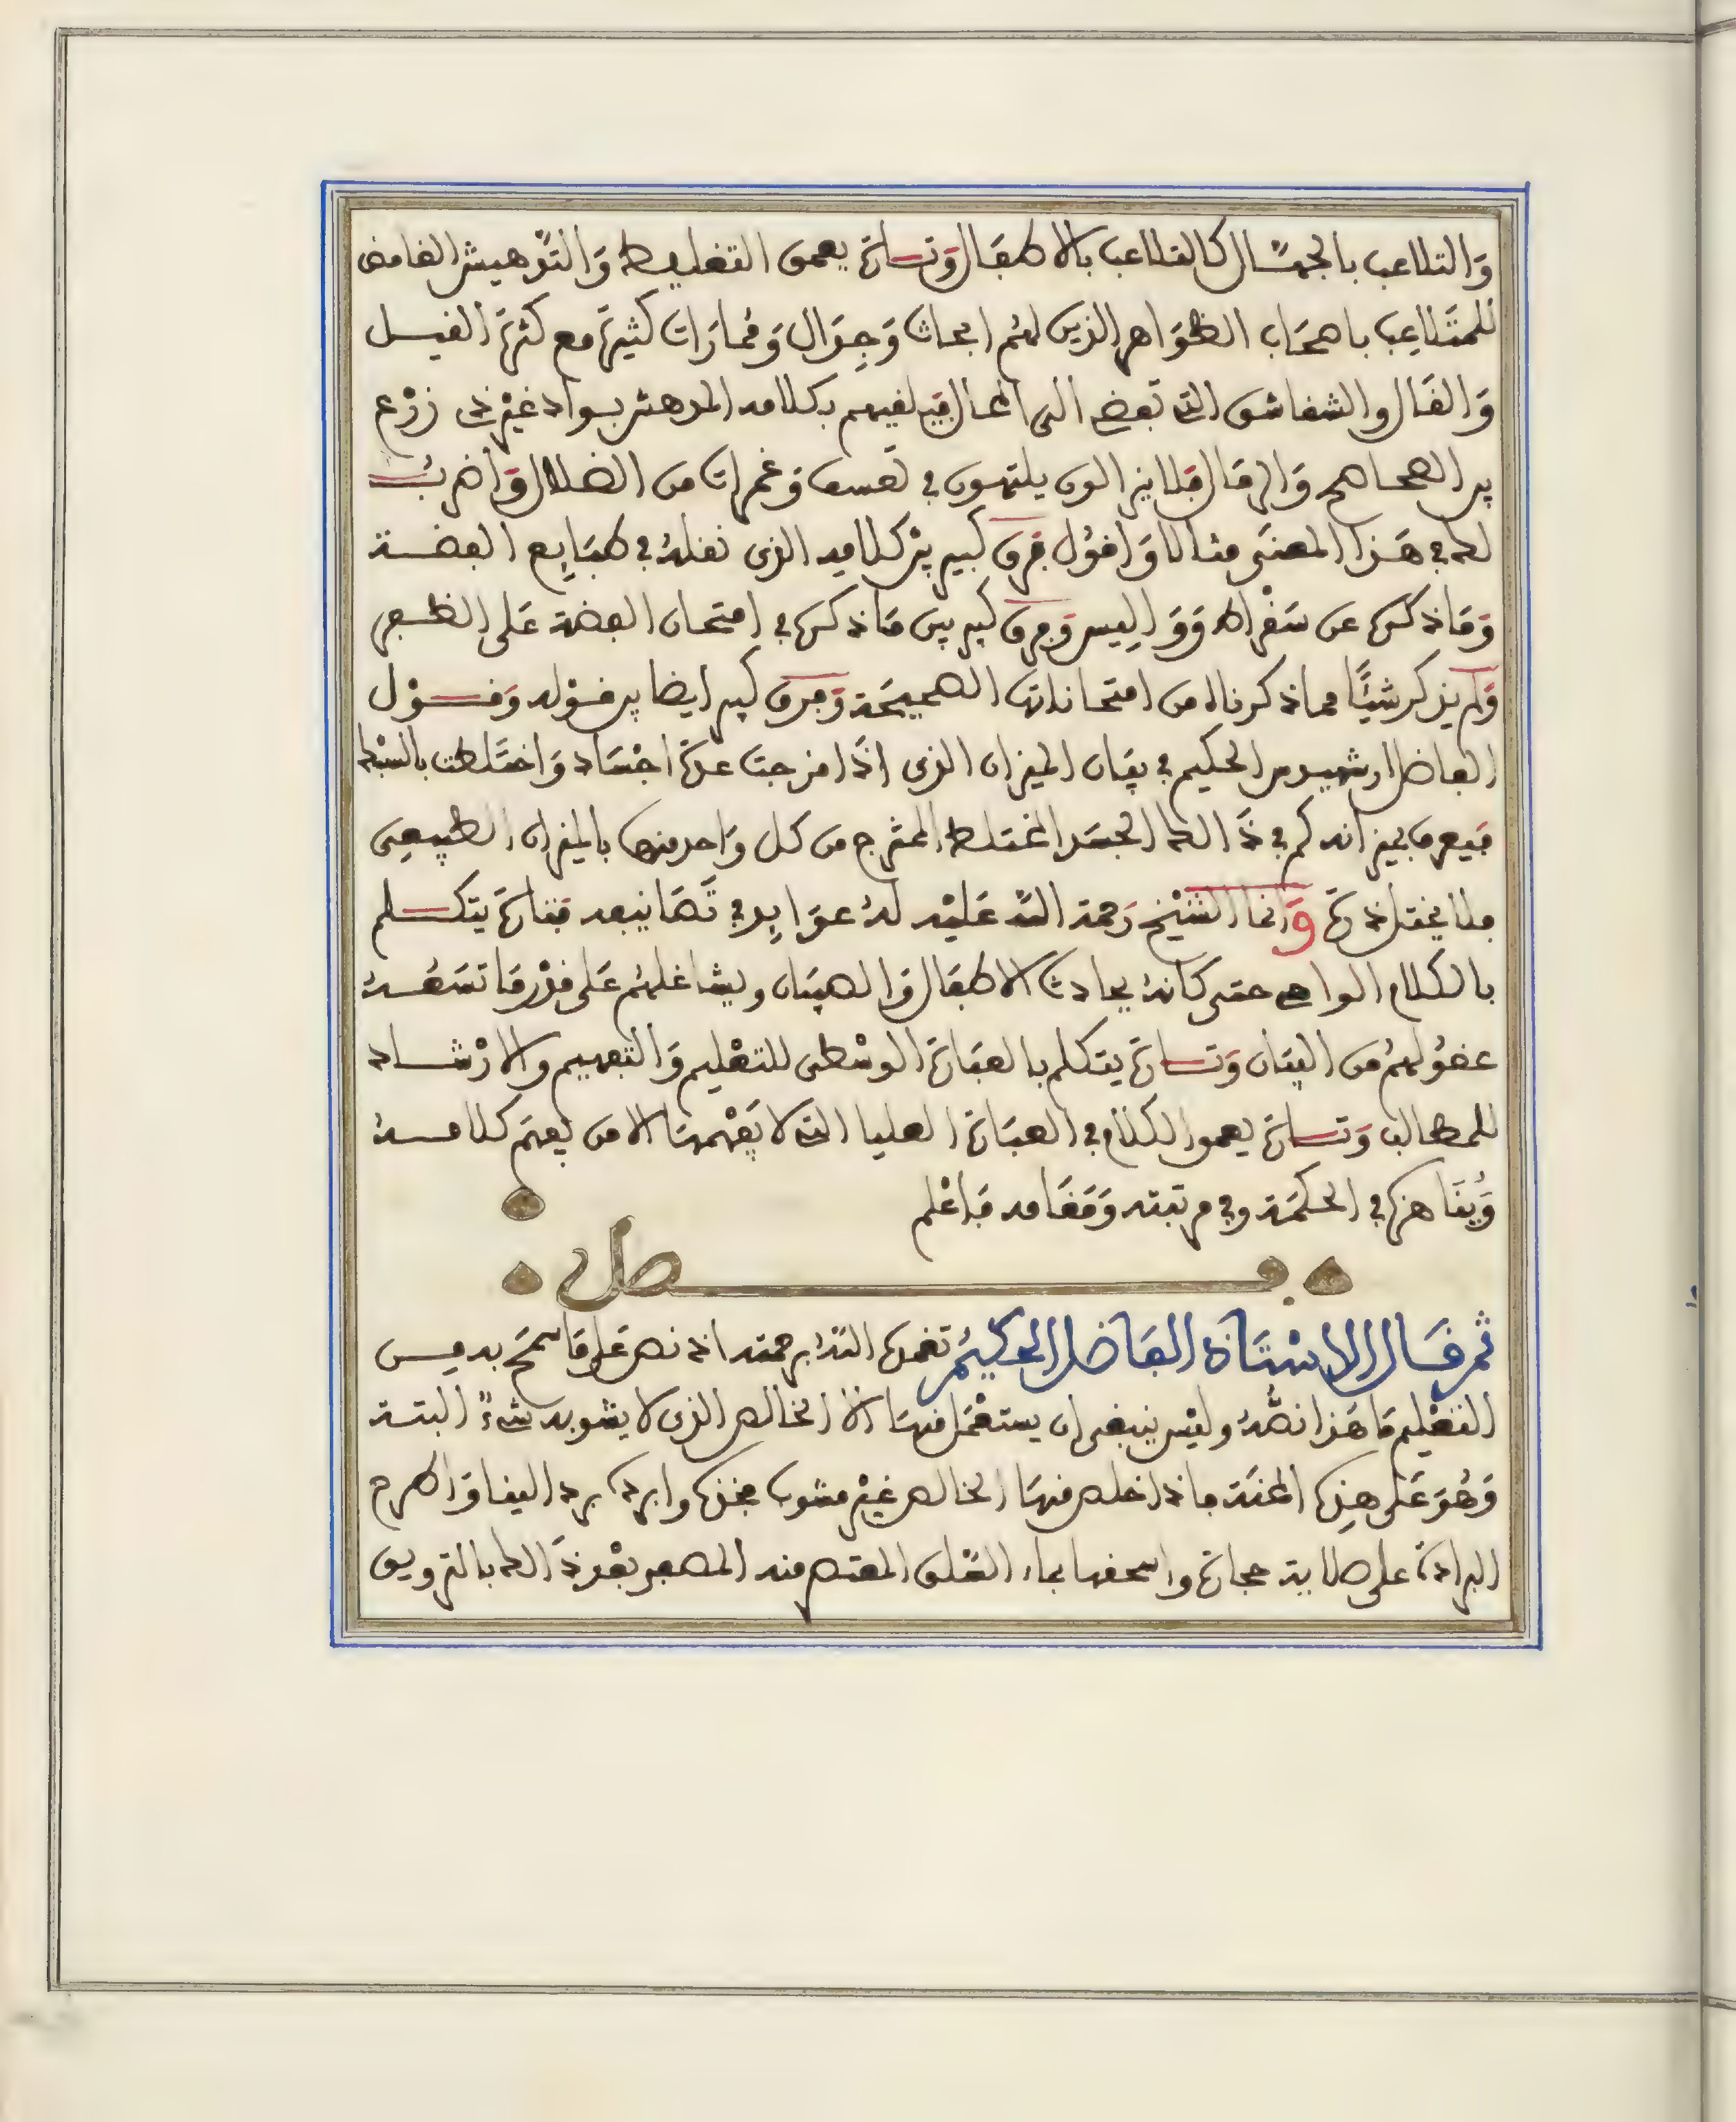 والتلاعب بالجهال كالتلاعب بالاطفال وتارة يعمق التغليط والتدهيش الغامض
للمتلاعب باصحاب الظواهر الذين لهم ابحاث وجدال ومماراة كثيرة مع كثرة القيل
والقال والشقاشق التي تفضي الى المحال فيلقيهم بكلامه المدهش بواد غير ذي زرع
بين الصحاصح والرمال فلا يزالون يلتهون في تعسف وغمرات من الضلال واضرب
لك في هذا المعنى مثالا واقول فرق كبير بين كلامه الذي نقله في طبايع الفضة
وما ذكره عن سقراط وواليس وفرق كبير بين ما ذكره في امتحان الفضة على الظفر
ولم يذكر شيئا مما ذكرناه من امتحاناتها الصحيحة وفرق كبير ايضا بين قوله وقول
الفاضل ارشميدس الحكيم في بيان الميزان الذي اذا مزجت عدة اجساد واختلطت بالسبك
فيعرف بميزانه كم في ذالك الجسد المختلط الممتزج من كل واحد منها بالميزان الطبيعي
فلا يختل ذرة وانما الشيخ رحمة الله عليه له عوايد في تصانيفه فتارة يتكلم
بالكلام الواضح حتى كانه يحادث الاطفال والصبيان ويشاغلهم على قدر ما تسعه
عقولهم من البيان وتارة يتكلم بالعبارة الوسطى للتعليم والتفهيم والارشاد
للمطالب وتارة يعمق الكلام في العبارة العليا التي لا يفهمها الا من يفهم كلامه
هذه في الحكمة وفي مرتبته ومقامه فاعلم
فصل
ثم قال الاستاذ الفاضل الحكيم تغمده الله برحمته اذ نص على ما سمح به من
التعليم ما هذا نصه وليس ينبغي ان يستعمل منها الا الخالص الذي لا يشوبه شيء البتة
وهو على هذه المحنة فاذا خلص منها الخالص غير مشوب فخذه وابرده بردا لينا واطرح
البرادة على صلاية حجارة واسحقها بماء العلق المعتصر منه المصعد بعد ذالك بالترويق